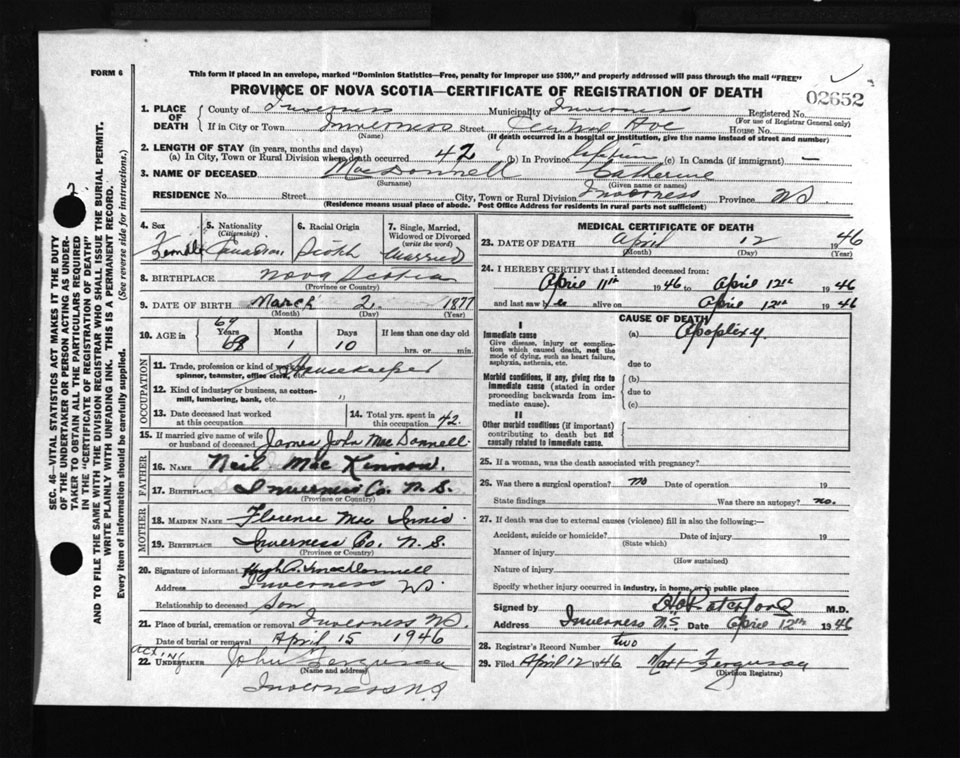 FORM 6
This form if placed in an envelope, marked "Dominion Statistics—Free, penalty for improper use $300," and properly addressed will pass through the mail "FREE"
PROVINCE OF NOVA SCOTIA—CERTIFICATE OF REGISTRATION OF DEATH
02652
SEC. 46—VITAL STATISTICS ACT MAKES IT THE DUTY
OF THE UNDERTAKER OR PERSON ACTING AS UNDER-
TAKER TO OBTAIN ALL THE PARTICULARS REQUIRED
IN THE "CERTIFICATE OF REGISTRATION OF DEATH"
AND TO FILE THE SAME WITH THE DIVISION REGISTRAR WHO SHALL ISSUE THE BURIAL PERMIT.
WRITE PLAINLY WITH UNFADING INK. THIS IS A PERMANENT RECORD.
Every item of information should be carefully supplied. (See reverse side for instructions.)
2
1. PLACE OF DEATH
County of Inverness Municipality of Inverness Registered No.
(For use of Registrar General only)
If in City or Town Inverness Street Central Ave House No.
(Name) (If death occurred in a hospital or institution, give the name instead of street and number)
2. LENGTH OF STAY (in years, months and days)
(a) In City, Town or Rural Division where death occurred 42 (b) In Province lifetime (c) In Canada (if immigrant) —
3. NAME OF DECEASED MacDonnell Catherine
(Surname) (Given name or names)
RESIDENCE No. Street City, Town or Rural Division Inverness Province NS
(Residence means usual place of abode. Post Office Address for residents in rural parts not sufficient)
4. Sex
Female
5. Nationality
(Citizenship)
Canadian
6. Racial Origin
Scotch
7. Single, Married, Widowed or Divorced
(write the word)
Married
8. BIRTHPLACE Nova Scotia
(Province or Country)
9. DATE OF BIRTH March 2 1877
(Month) (Day) (Year)
10. AGE in
69
Years Months Days If less than one day old
68 1 10 hrs. or min.
OCCUPATION
11. Trade, profession or kind of work as spinner, teamster, office clerk, etc. Housekeeper
12. Kind of industry or business, as cotton-mill, lumbering, bank, etc. "
13. Date deceased last worked at this occupation
14. Total yrs. spent in this occupation 42.
15. If married give name of wife or husband of deceased James John MacDonnell
FATHER
16. NAME Neil MacKinnon.
17. BIRTHPLACE Inverness Co. N.S.
(Province or Country)
MOTHER
18. MAIDEN NAME Florence Mac Innis
19. BIRTHPLACE Inverness Co. N.S.
(Province or Country)
20. Signature of informant Hugh A. MacDonnell
Address Inverness NS
Relationship to deceased Son
21. Place of burial, cremation or removal Inverness N.S.
Date of burial or removal April 15 1946
Acting
22. UNDERTAKER John Ferguson
(Name and address)
Inverness N.S
MEDICAL CERTIFICATE OF DEATH
23. DATE OF DEATH April 12 1946
(Month) (Day) (Year)
24. I HEREBY CERTIFY that I attended deceased from:
April 11th 1946 to April 12th 1946
and last saw h alive on April 12th 1946
CAUSE OF DEATH
I
Immediate cause
Give disease, injury or complication which caused death, not the mode of dying, such as heart failure, asphyxia, asthenia, etc.
(a) Apoplexy
due to
Morbid conditions, if any, giving rise to immediate cause (stated in order proceeding backwards from immediate cause).
(b)
due to
(c)
II
Other morbid conditions (if important) contributing to death but not causally related to immediate cause.
25. If a woman, was the death associated with pregnancy?
26. Was there a surgical operation? no Date of operation 19
State findings Was there an autopsy? no.
27. If death was due to external causes (violence) fill in also the following:—
Accident, suicide or homicide? Date of injury 19
(State which)
Manner of injury
(How sustained)
Nature of injury
Specify whether injury occurred in industry, in home, or in public place
Signed by M.D.
Address Inverness N.S. Date April 12th 1946
28. Registrar's Record Number two
29. Filed April 12 1946 Matt Ferguson
(Division Registrar)